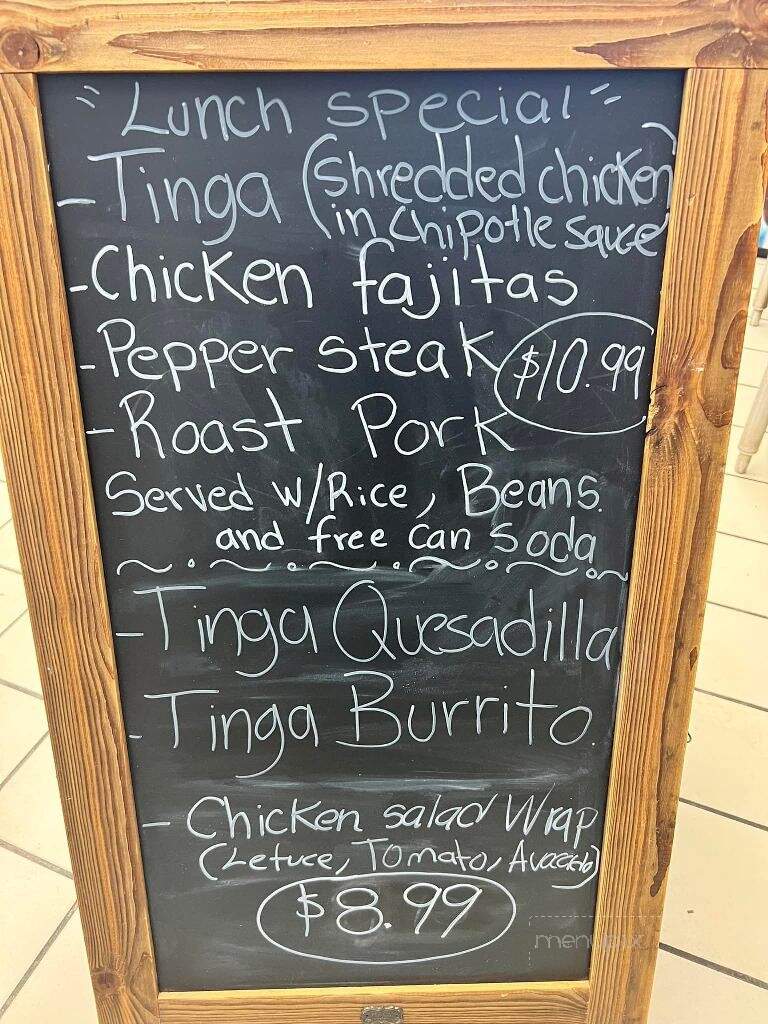 "Lunch special"
- Tinga (shredded chicken
in chipotle sauce
- Chicken fajitas
- Pepper steak $10.99
- Roast Pork
Served w/Rice, Beans.
and free can soda
- Tinga Quesadilla
- Tinga Burrito.
- Chicken salad Wrap
(Letuce, Tomato, Avocado)
$8.99
menupix